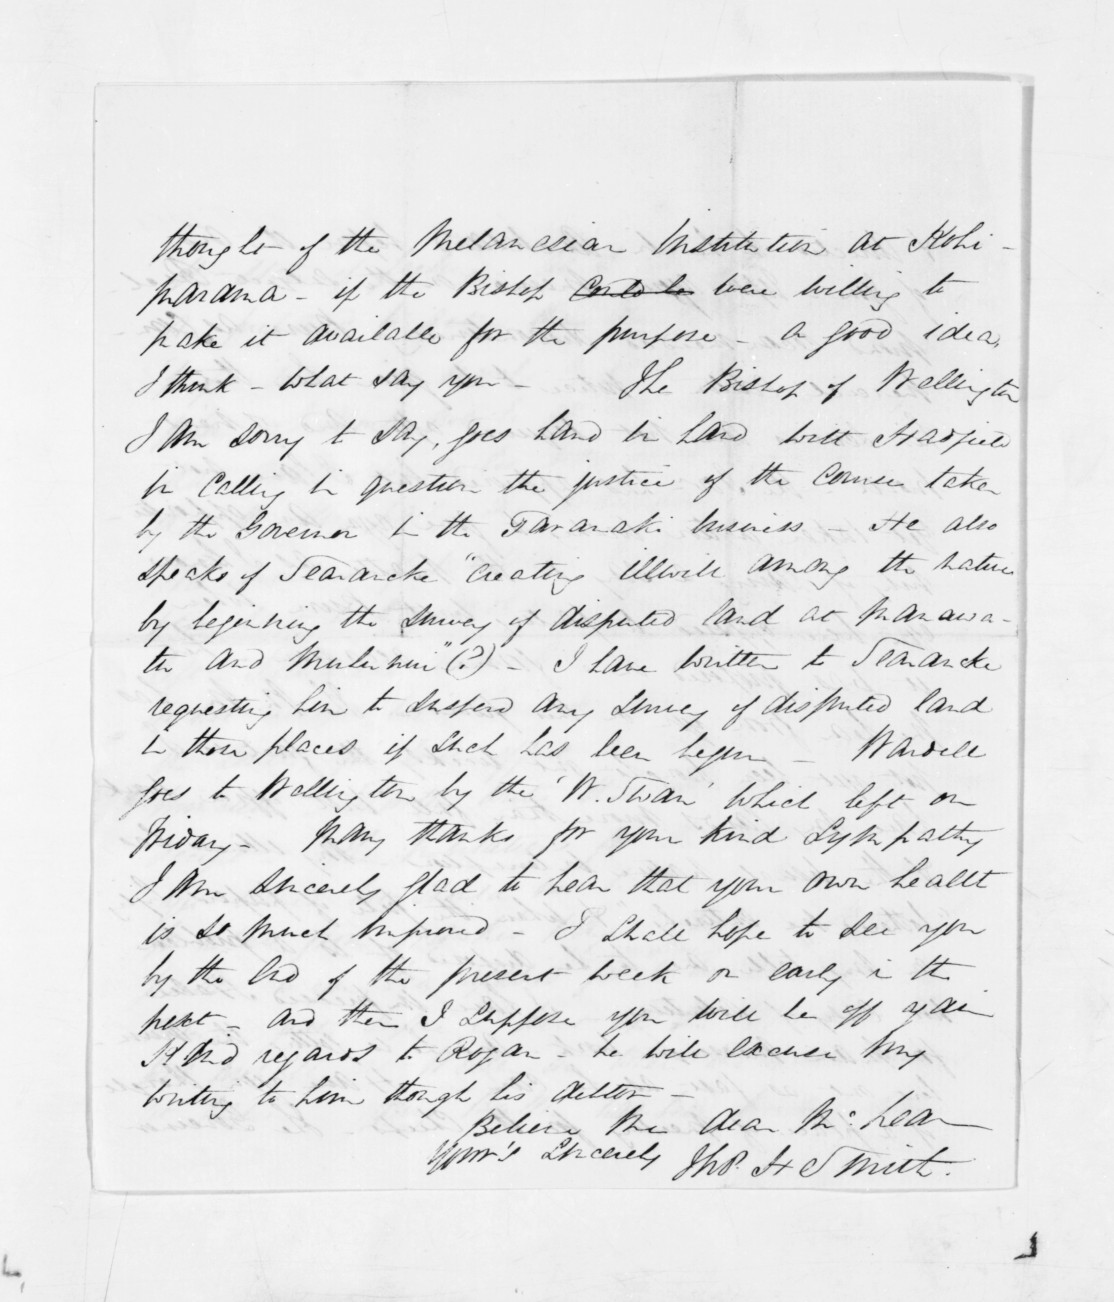 thought of the Melanesian Institution at Kohi-
marama - if the Bishop could be were willing to
make it available for the purpose - a good idea,
I think - What say you - The Bishop of Wellington
I am sorry to say, goes hand in hand with Hadfield
in calling in question the justice of the course taken
by the Governor in the Taranaki business - He also
speaks of Searancke "creating illwill among the natives
by beginning the survey of disputed land at Manawa-
tu and" (?) - I have written to Searancke
requesting him to suspend any survey of disputed land
in those places if such has been begun - Wardell
goes to Wellington by the 'W. Swan' which left on
Friday - Many thanks for your kind sympathy
I am sincerely glad to hear that your own health
is so much improved - I shall hope to see you
by the end of the present week or early in the
next - and then I suppose you will be off again
Kind regards to Rogan - he will excuse my
writing to him though his debtor -
Believe me dear McLean
Your's Sincerely Thos. H Smith.